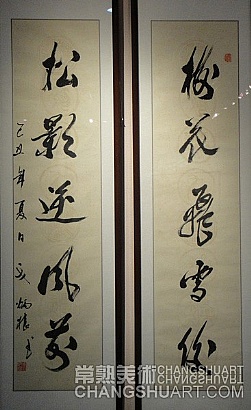 梅花飛雪後
松影逆風前
己丑年夏日
書
常熟美術
CHANGSHUART
CHANGSHUART.COM